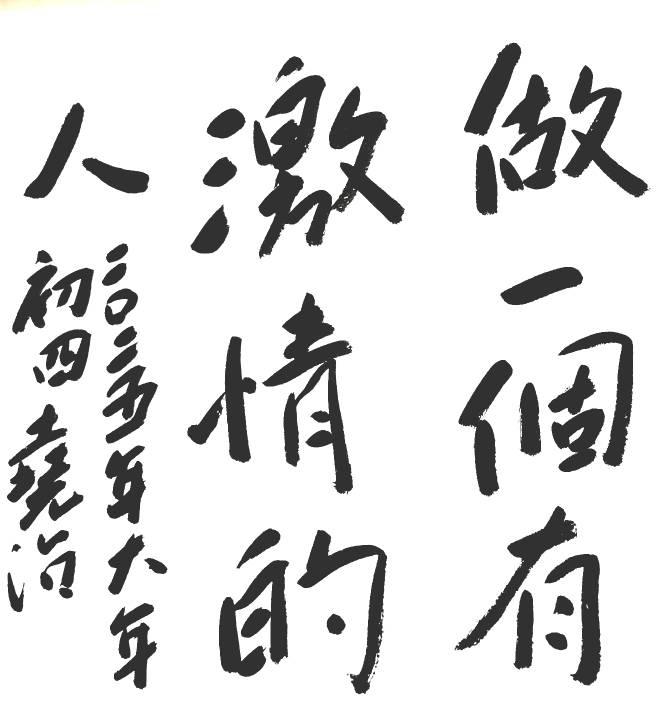 做一個有
激情的
人
二〇二五年大年
初四堯治